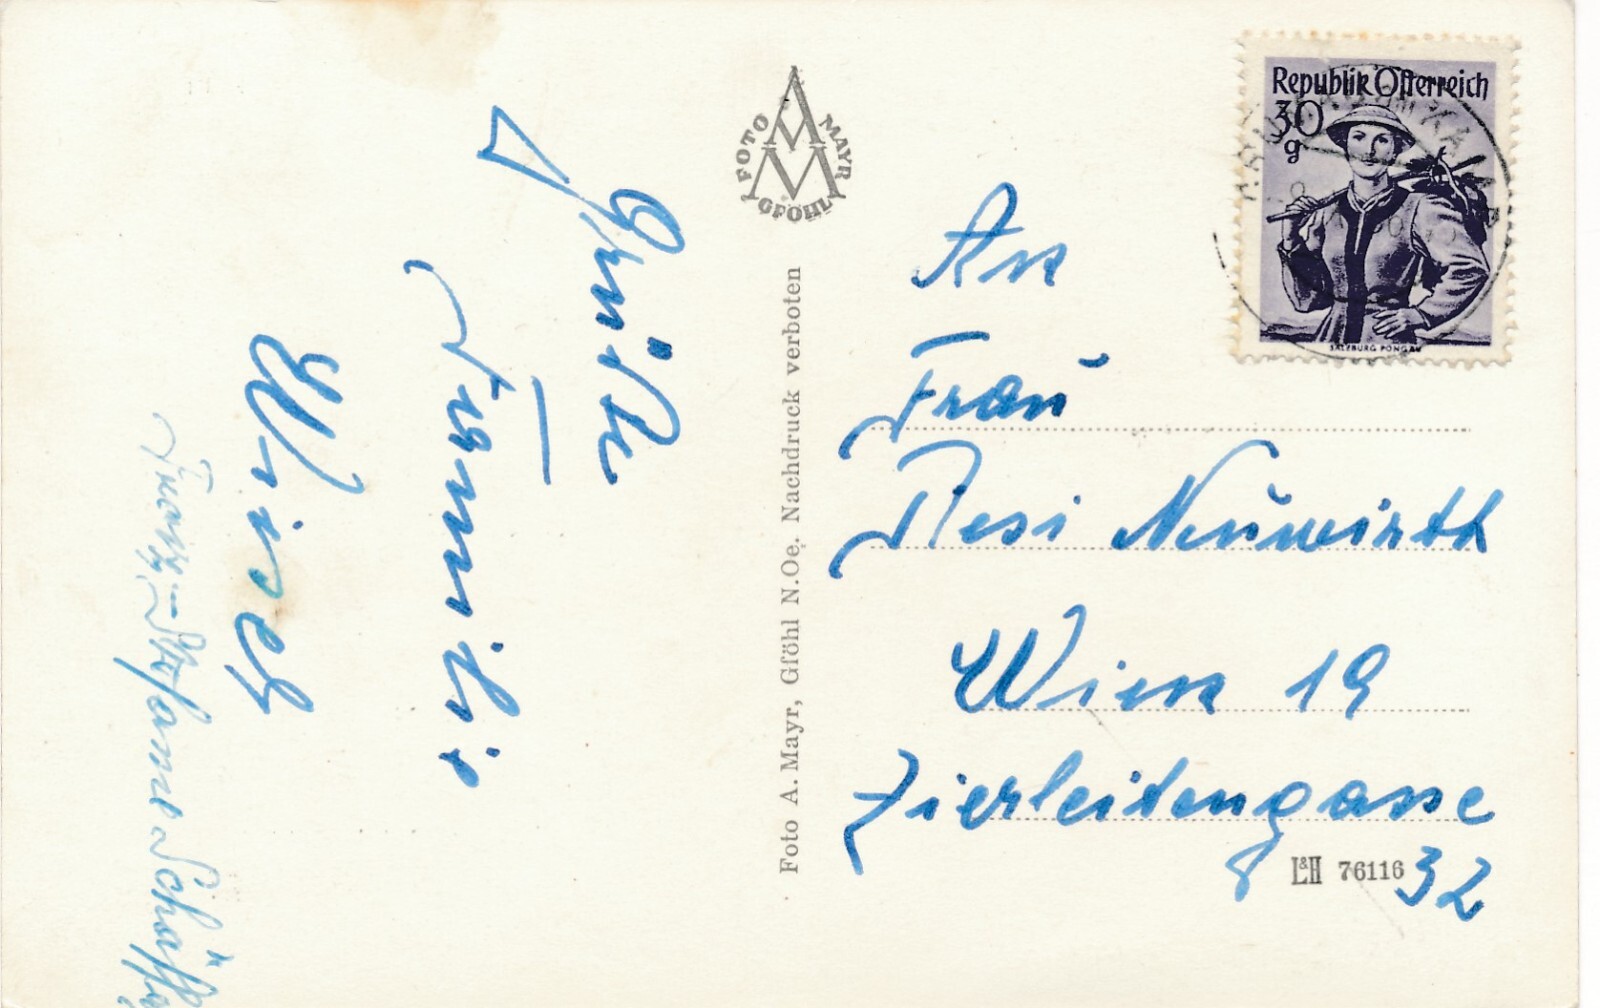 5 Grüße
Familie
Wirch
Franz Stefanie Schöff
FOTO MAYR
GFÖHL
Foto A. Mayr, Gföhl N.Oe. Nachdruck verboten
Republik Österreich
30
g
SALZBURG PONGAU
An
Frau
Resi Neuwirth
Wien 19
Zierleitengasse
32
L&H 76116